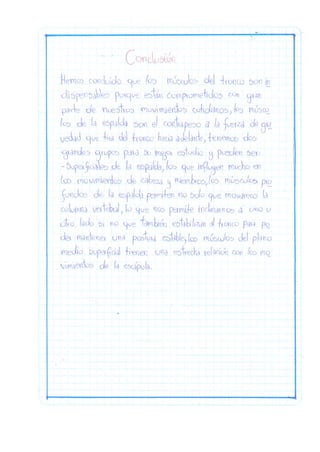 Conclusión
Hemos concluido que los músculos del tronco son in
dispensables porque están comprometidos con gran
parte de nuestros movimientos cotidianos, los múscu
los de la espalda son el contrapeso a la fuerza de gra
vedad que tira del tronco hacia adelante, tenemos dos
grandes grupos para su mejor estudio y pueden ser:
- Superficiales de la espalda, los que influyen mucho en
los movimientos de cabeza y miembros, los músculos pro
fundos de la espalda permiten no solo que movamos la
columna vertebral, lo que nos permite inclinarnos a uno u
otro lado si no que también estabilizan el tronco para po
der mantener una postura estable, los músculos del plano
medio superficial tienen una estrecha relación con los mo
vimientos de la escápula.